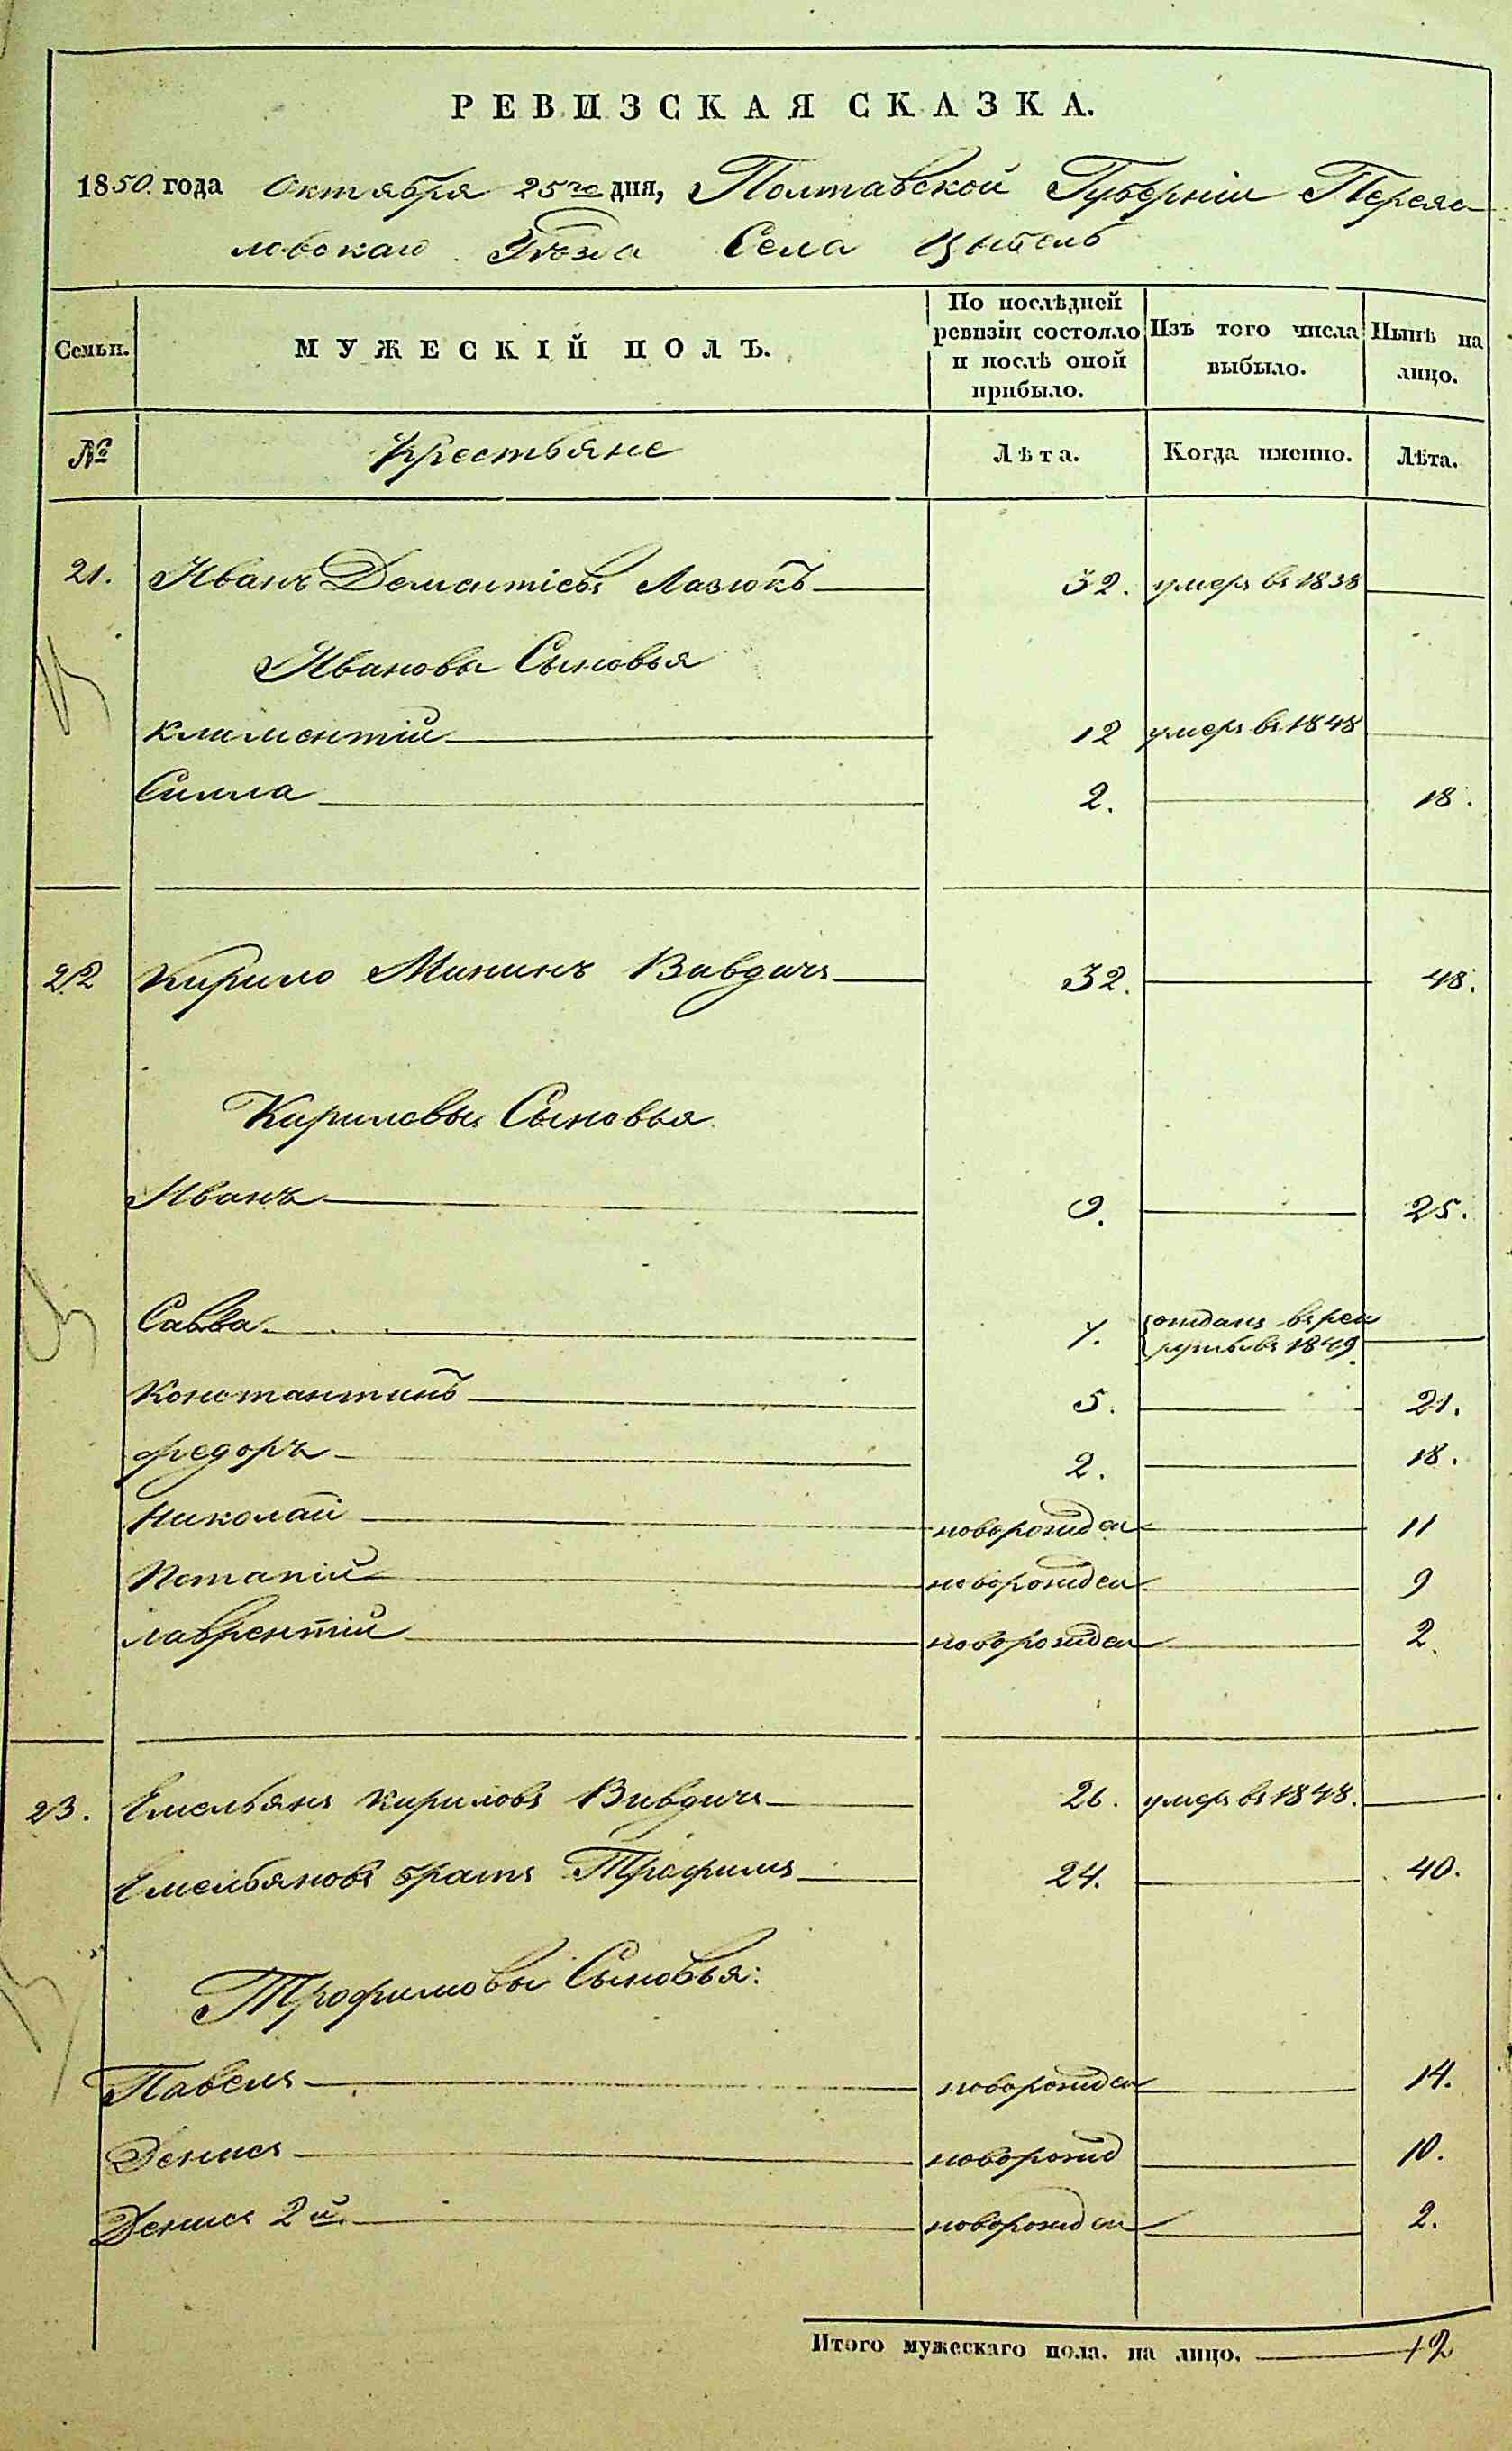 РЕВИЗСКАЯ СКАЗКА.
1850. года Октября 25го дня, Полтавской Губерніи Переяс-
ловскаго Уѣзда Села Цыбель
Семьи. МУЖЕСКІЙ ПОЛЪ. По послѣдней ревизіи состояло и послѣ оной прибыло. Изъ того числа выбыло. Нынѣ на лицо.
№ Крестьяне Лѣта. Когда именно. Лѣта.
21. Иванъ Дементіевъ Лазюкъ 32. умеръ въ 1838
Ивановы Сыновья
Климентій 12 умеръ въ 1848
Силла 2. 18.
22 Кирило Мининъ Вивдичъ 32. 48.
Кириловы Сыновья
Иванъ 9. 25.
Савва 7. отданъ въ рекруты въ 1849.
Константинъ 5. 21.
Федоръ 2. 18.
Николай новорожден 11
Потапій новорожден 9
Лаврентій новорожден 2.
23. Емельянъ Кириловъ Вивдичъ 26. умеръ въ 1848.
Емельяновъ братъ Трофимъ 24. 40.
Трофимовы Сыновья:
Павелъ новорожден 14.
Денисъ новорожд 10.
Денисъ 2й. новорожден 2.
Итого мужескаго пола. на лицо. 12